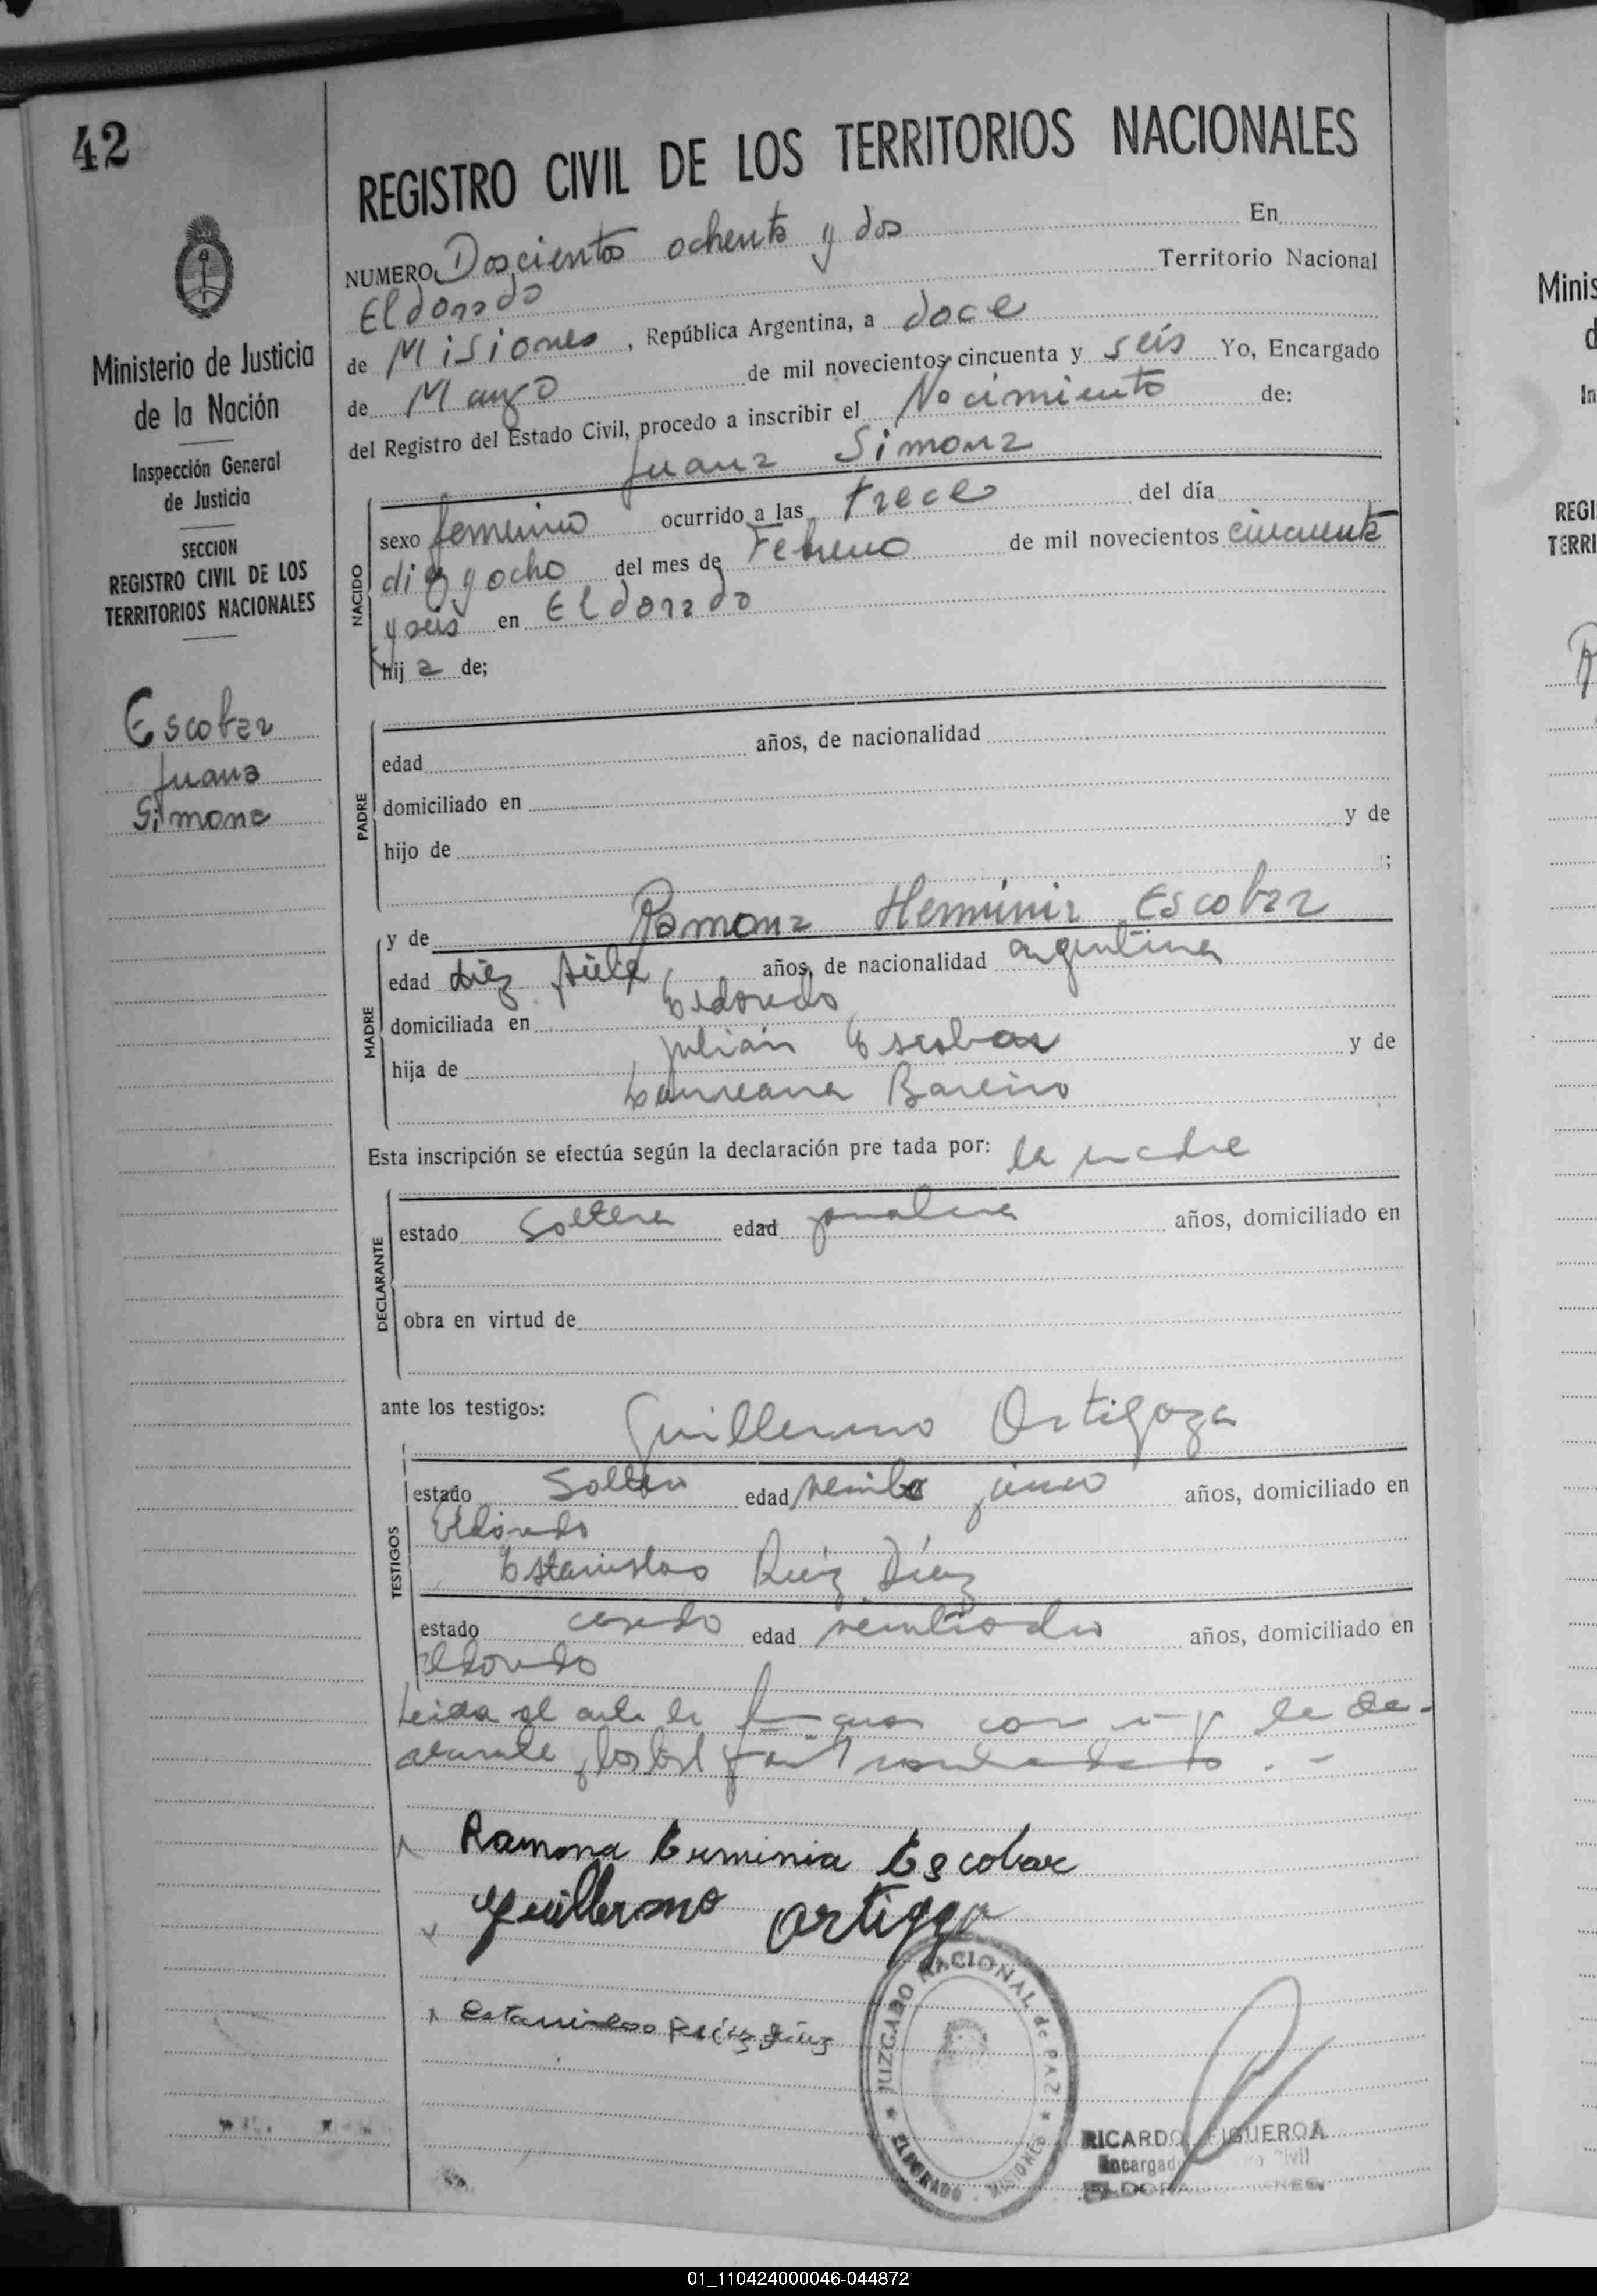 42
REGISTRO CIVIL DE LOS TERRITORIOS NACIONALES
Ministerio de Justicia
de la Nación
Inspección General
de Justicia
SECCION
REGISTRO CIVIL DE LOS
TERRITORIOS NACIONALES
Escobar
Juana
Simona
NUMERO Doscientos ochenta y dos En
Eldorado Territorio Nacional
de Misiones, República Argentina, a doce
de Marzo de mil novecientos cincuenta y seis Yo, Encargado
del Registro del Estado Civil, procedo a inscribir el Nacimiento de:
Juana Simona
NACIDO
sexo femenino ocurrido a las trece del día
diez y ocho del mes de Febrero de mil novecientos cincuenta
y seis en Eldorado
hij a de;
PADRE
edad años, de nacionalidad
domiciliado en
hijo de y de
;
MADRE
y de Ramona Herminia Escobar
edad diez siete años, de nacionalidad argentina
domiciliada en Eldorado
hija de Julián Escobar y de
Laureana Bareiro
Esta inscripción se efectúa según la declaración pre tada por: la madre
DECLARANTE
estado soltera edad años, domiciliado en
obra en virtud de
ante los testigos: Guillermo Ortigoza
TESTIGOS
estado soltero edad veinte cinco años, domiciliado en
Eldorado
Estanislao Ruiz Díaz
estado casado edad años, domiciliado en
Eldorado
Leida el acta la
Ramona Erminia Escobar
Guillermo
Estanislao Ruiz Diaz
JUZGADO NACIONAL de PAZ
ELDORADO - MISIONES
RICARDO FIGUEROA
Encargad Civil
Minis
d
In
REGI
TERRI
01_110424000046-044872